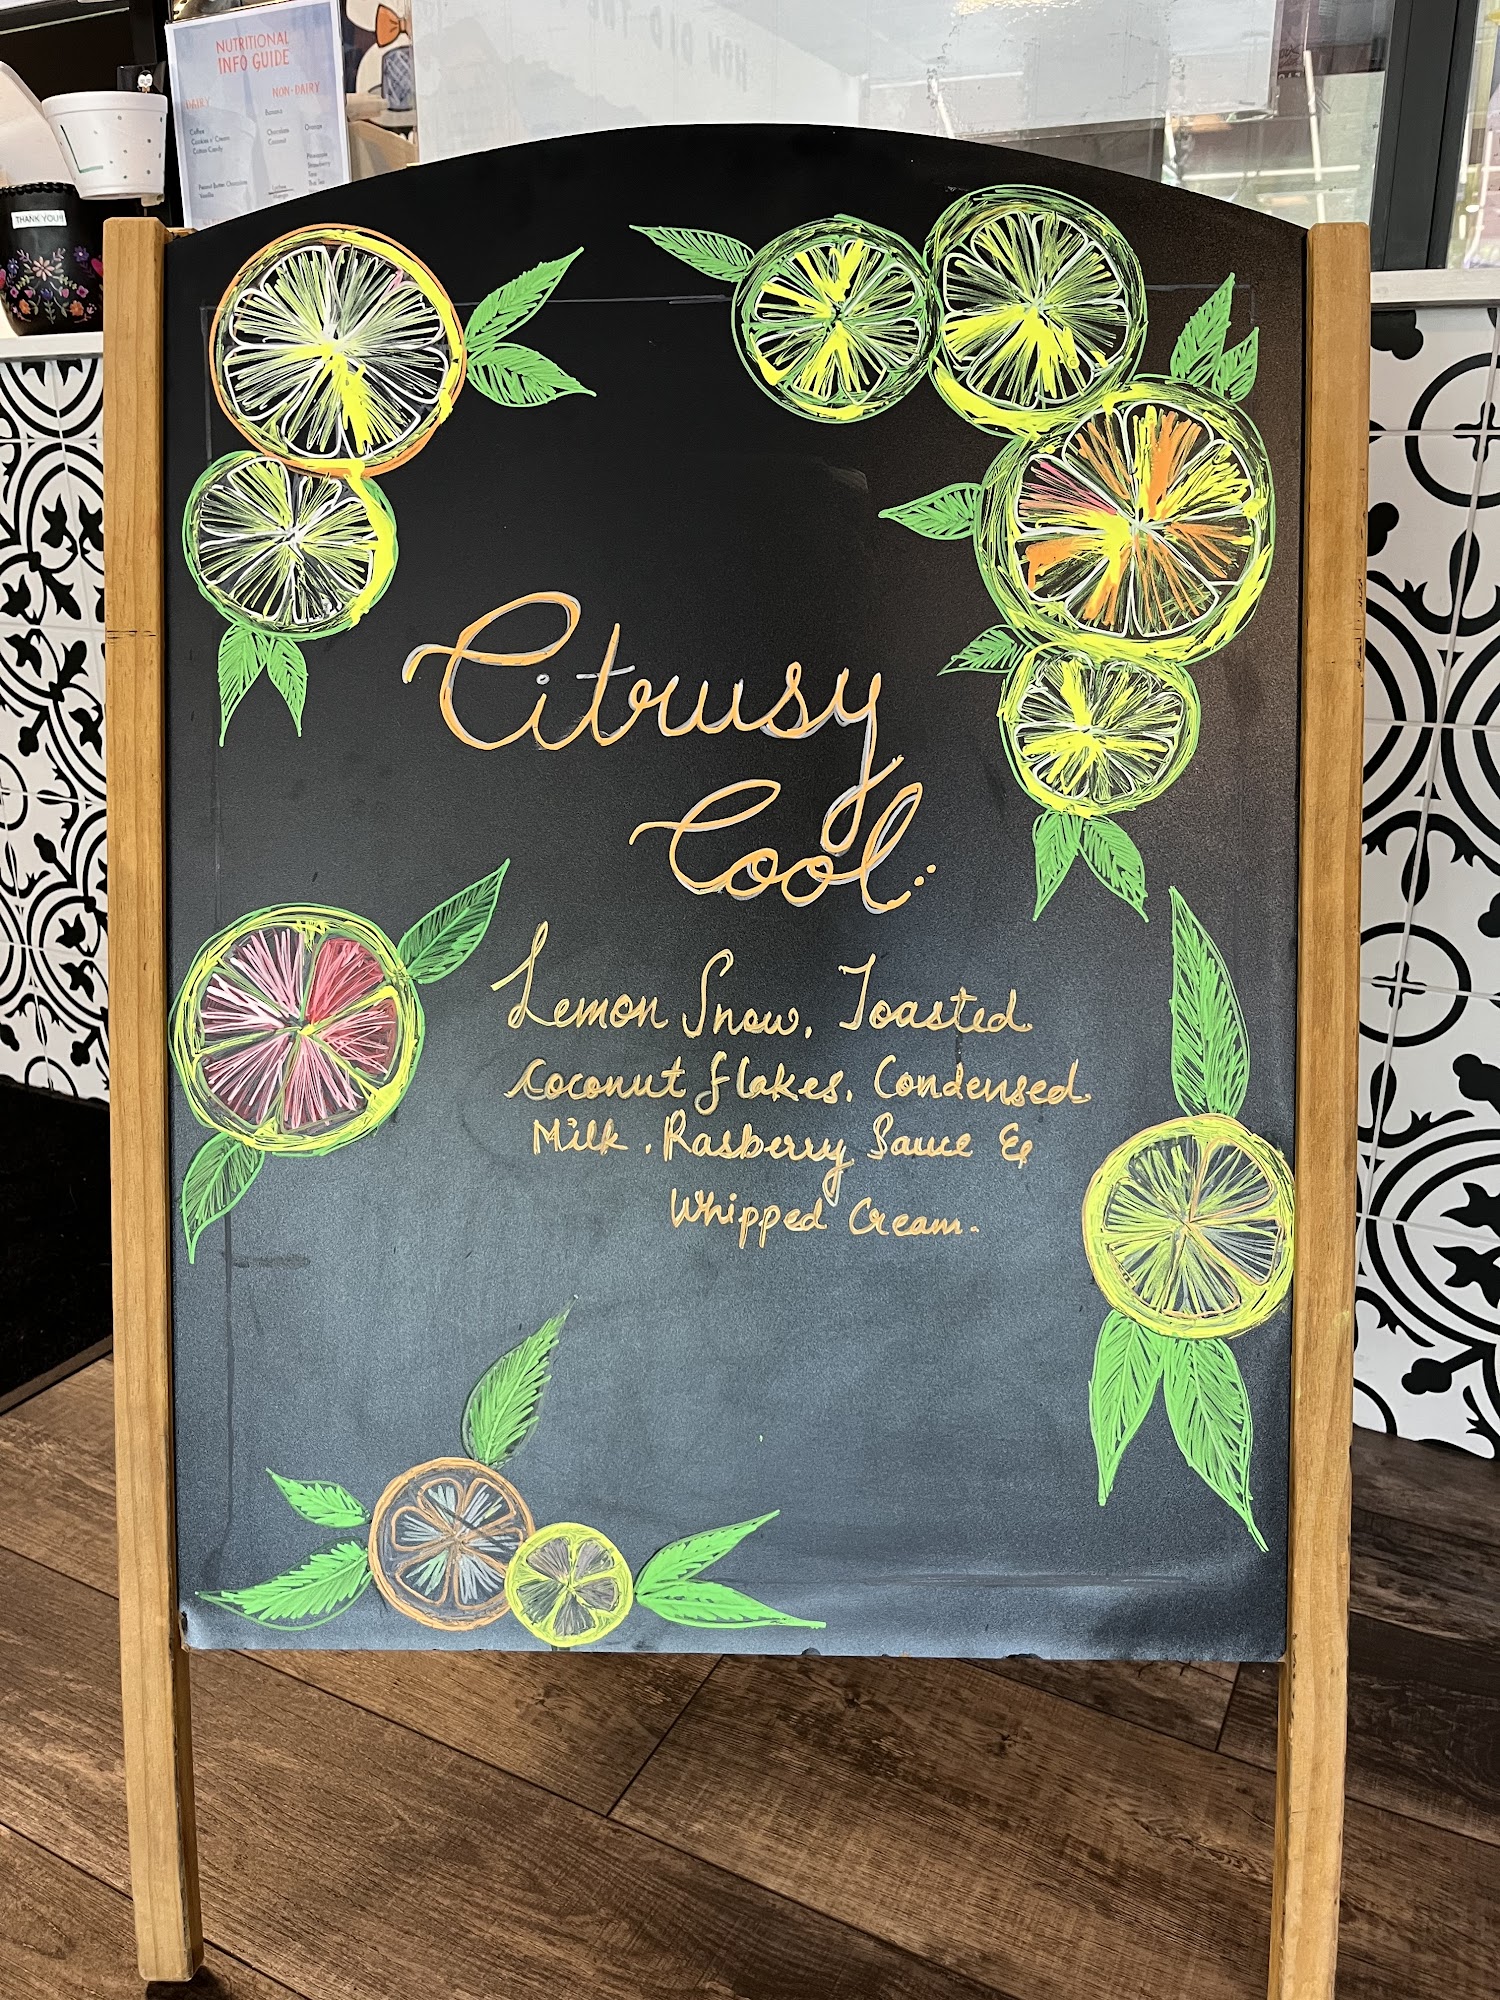 NUTRITIONAL
INFO GUIDE
DAIRY
NON-DAIRY
Banana
Coffee
Cookies n' Cream
Cotton Candy
Chocolate
Coconut
Orange
Pineapple
Strawberry
Taro
Thai Tea
Peanut Butter Chocolate
Vanilla
Lychee
Mango
THANK YOU!
Citrusy
Cool:
Lemon Snow, Toasted
Coconut flakes, Condensed
Milk, Rasberry Sauce &
Whipped Cream.